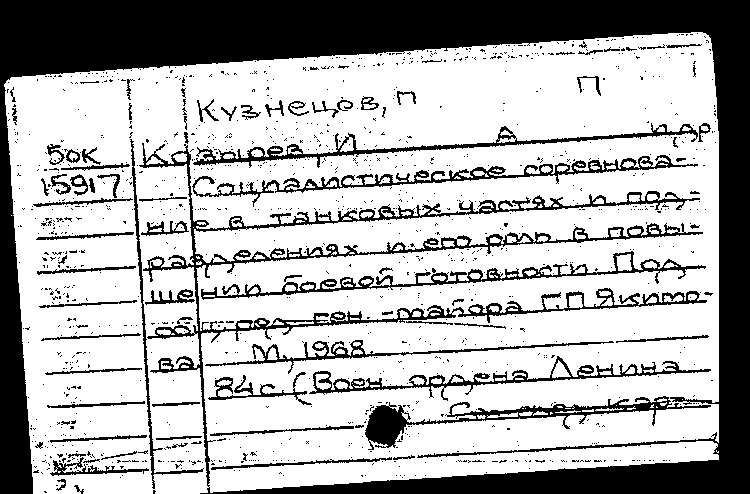 Кузнецов, П П
Бок Козырев, И А и др
15917 Социалистическое соревнова-
ние в танковых частях и под-
разделениях и его роль в повы-
шении боевой готовности. Под
общ. ред. ген. -майора Г.П. Якимо-
ва М., 1968.
84 с (Воен. ордена Ленина
См. след. кар.